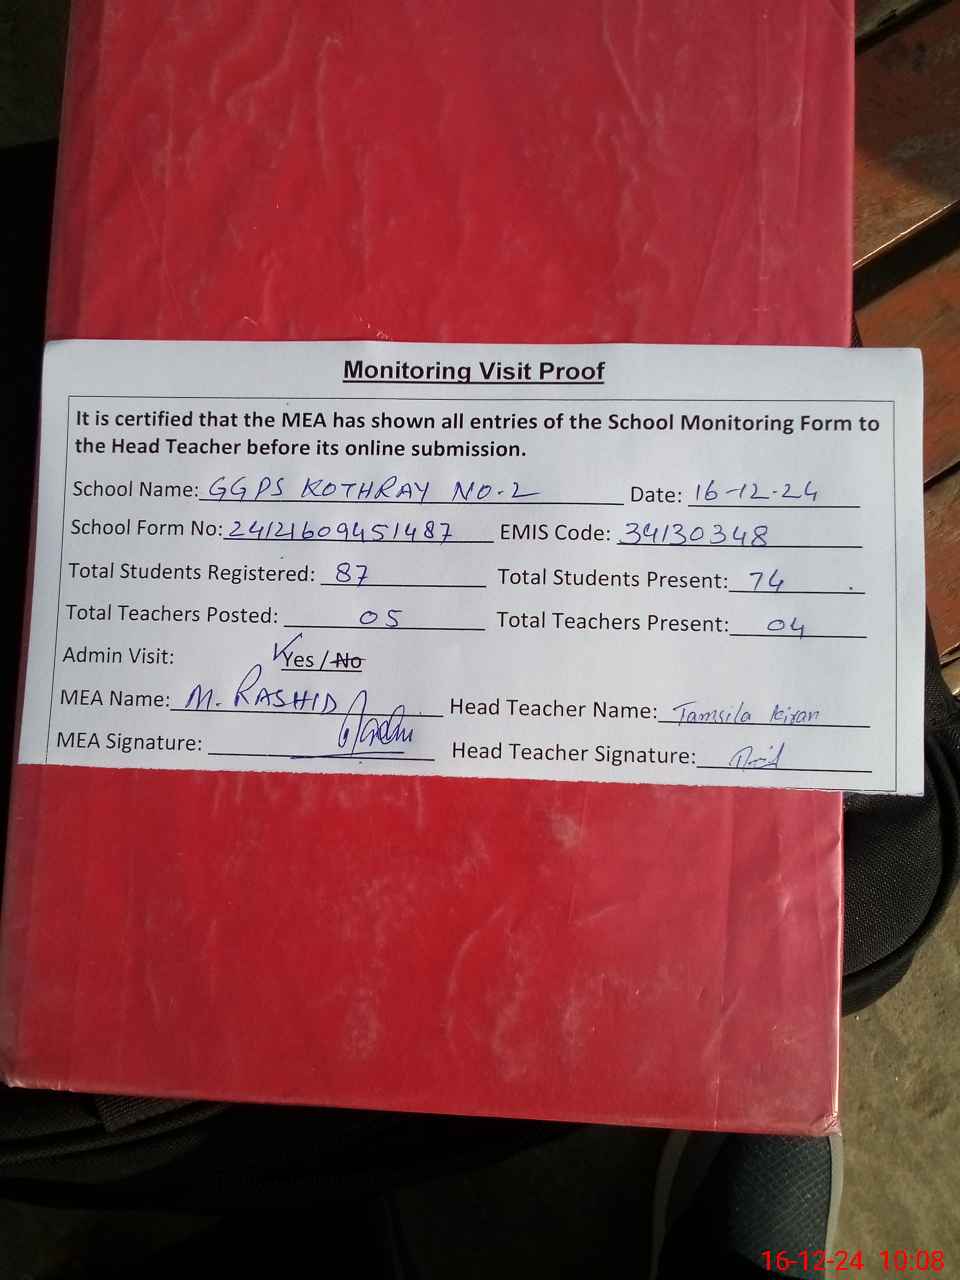 Monitoring Visit Proof
It is certified that the MEA has shown all entries of the School Monitoring Form to
the Head Teacher before its online submission.
School Name: GGPS KOTHRAY NO.2 Date: 16-12-24
School Form No: 24121609451487 EMIS Code: 34130348
Total Students Registered: 87 Total Students Present: 74
Total Teachers Posted: 05 Total Teachers Present: 04
Admin Visit: Yes / No
MEA Name: M. RASHID Head Teacher Name: Tamsila Kiran
MEA Signature: Head Teacher Signature:
16-12-24 10:08